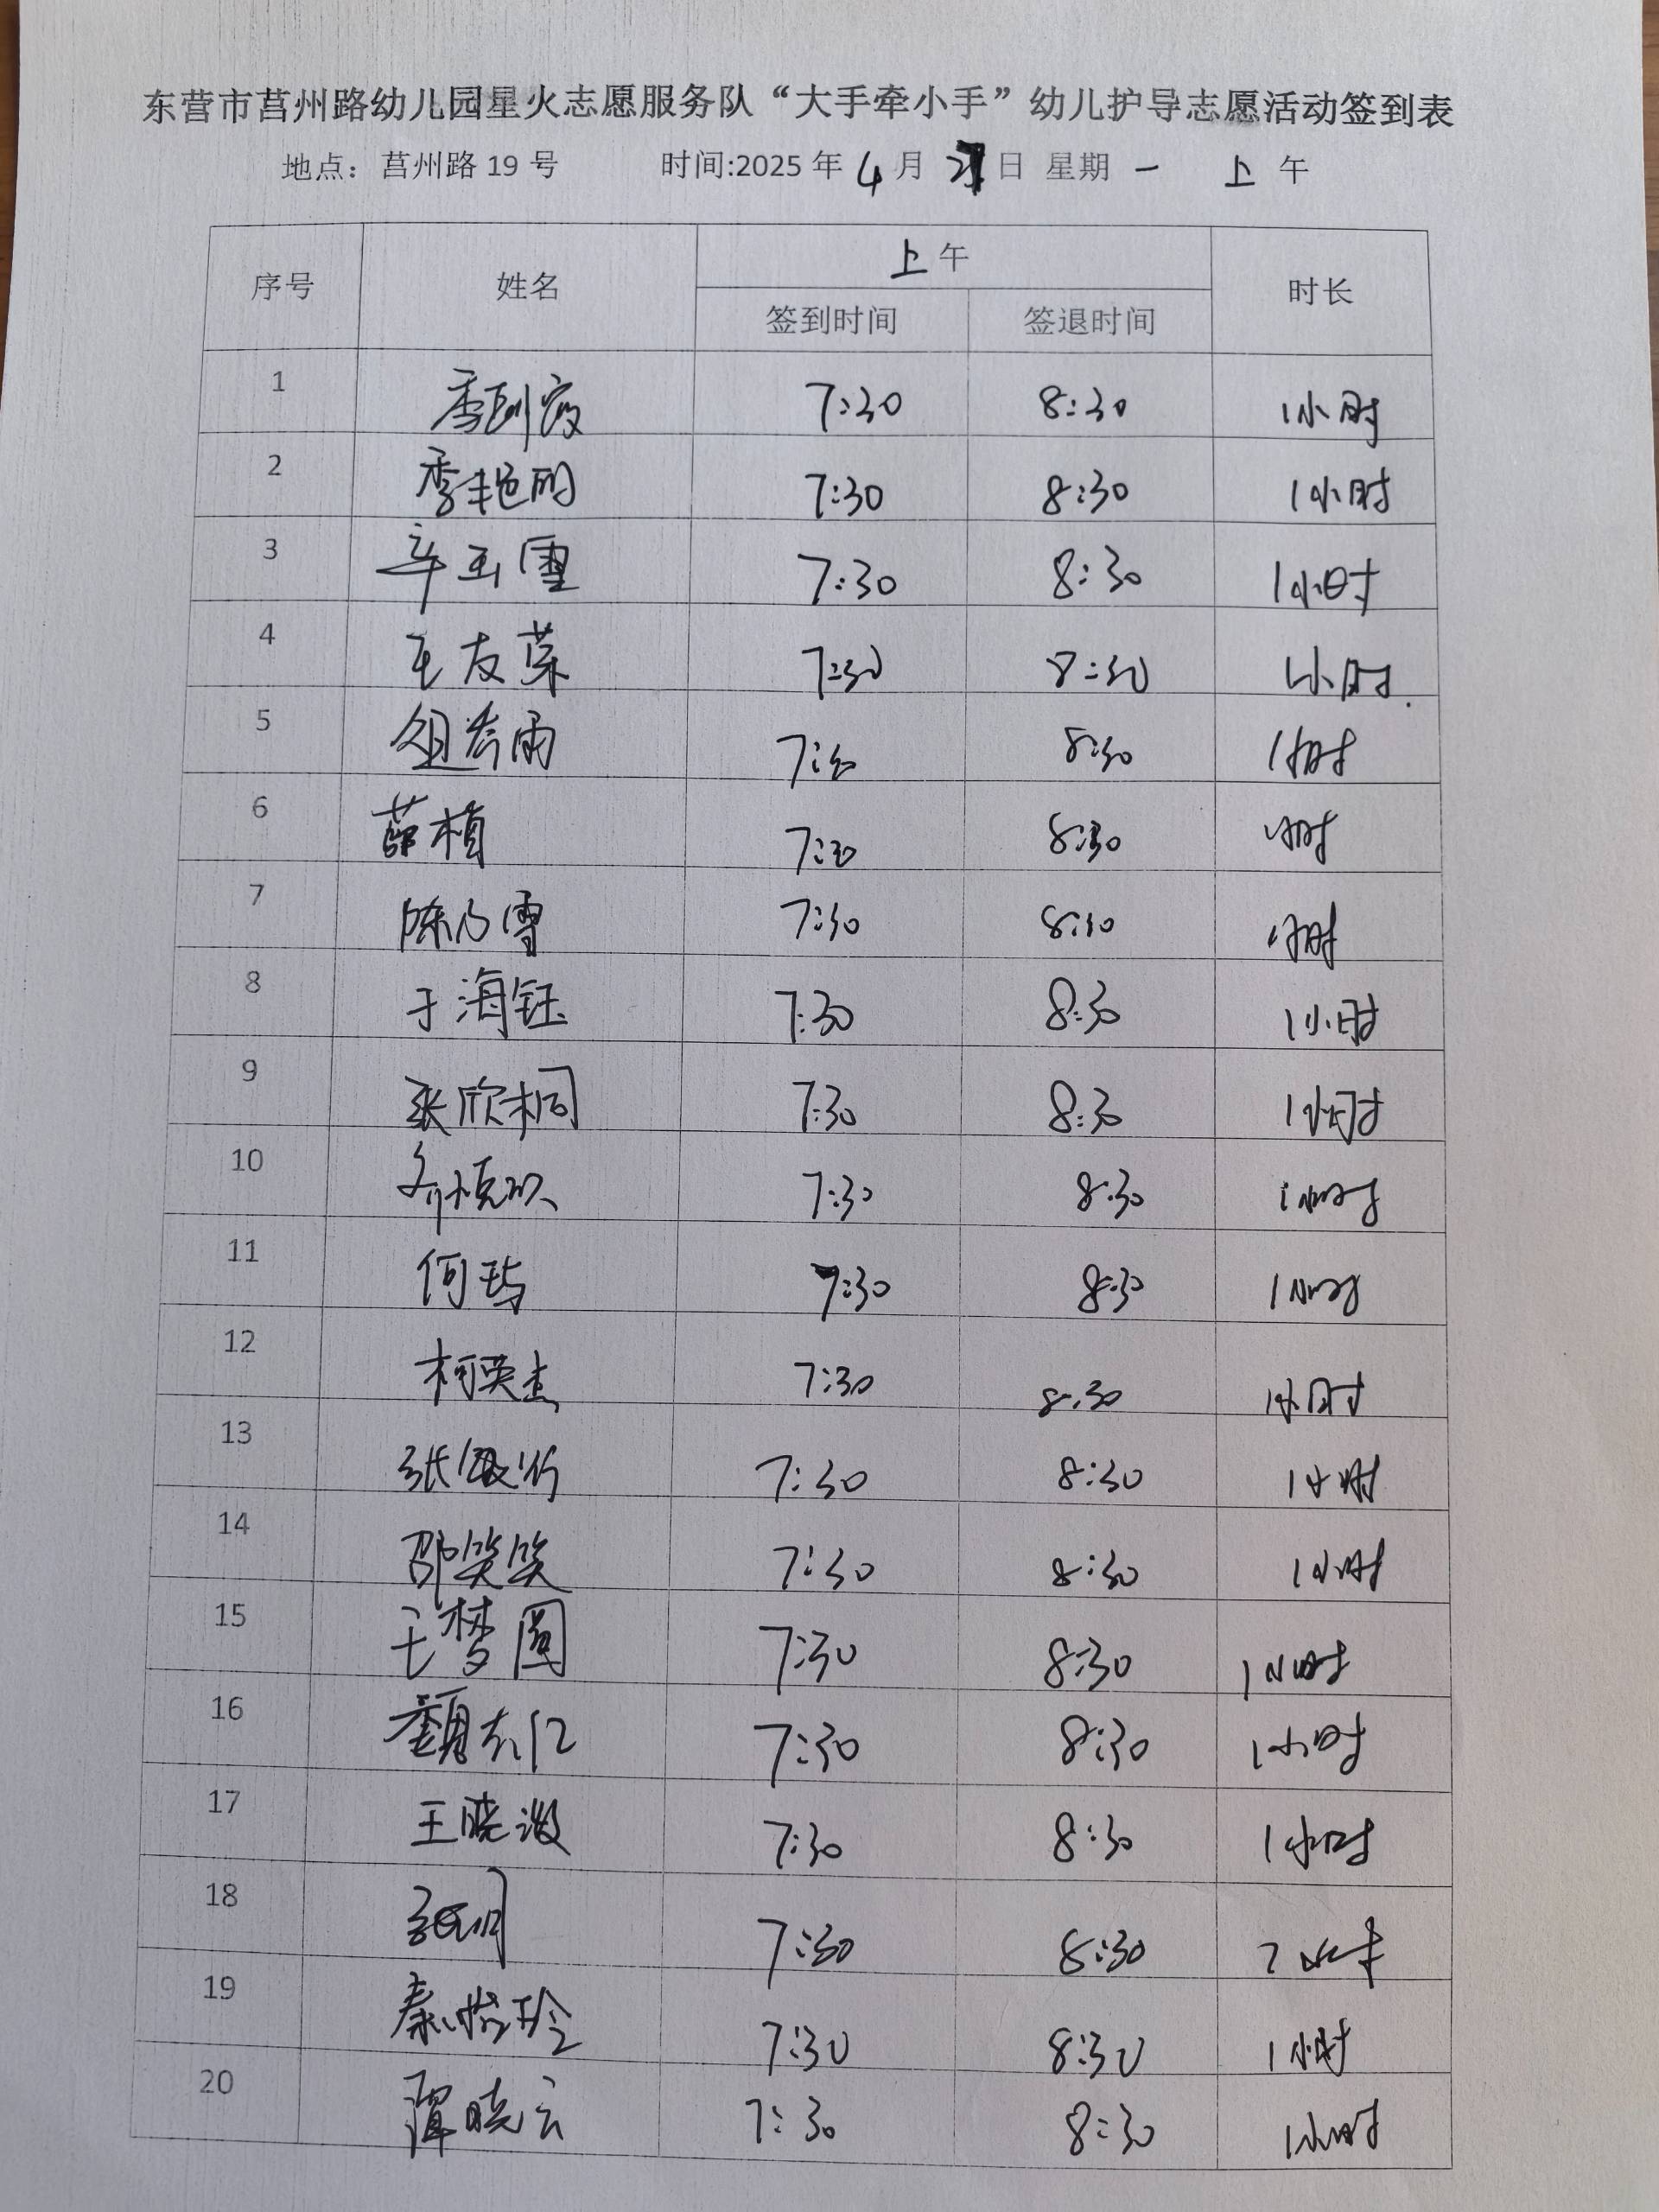 东营市莒州路幼儿园星火志愿服务队“大手牵小手”幼儿护导志愿活动签到表
地点：莒州路 19 号 时间:2025 年 4 月 日 星期 一 上 午
序号 姓名 上 午 时长
签到时间 签退时间
1 7:30 8:30 1小时
2 季艳丽 7:30 8:30 1小时
3 辛玉雪 7:30 8:30 1小时
4 王友荣 7:30 8:30 1小时
5 7:30 8:30 1小时
6 薛植 7:30 8:30 1小时
7 陈乃雪 7:30 8:30 1小时
8 于海钰 7:30 8:30 1小时
9 张欣桐 7:30 8:30 1小时
10 7:30 8:30 1小时
11 何 7:30 8:30 1小时
12 柯英杰 7:30 8:30 1小时
13 张 7:30 8:30 1小时
14 邵笑笑 7:30 8:30 1小时
15 王梦圆 7:30 8:30 1小时
16 7:30 8:30 1小时
17 王晓 7:30 8:30 1小时
18 7:30 8:30
19 秦怡玲 7:30 8:30 1小时
20 谭晓云 7:30 8:30 1小时